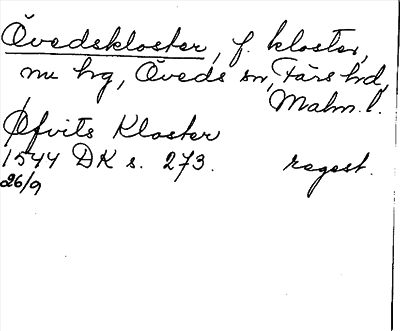 Övedskloster, f. kloster,
nu hg, Öveds sn, Färs hd,
Malm. l.
Øfvits Kloster
1544 DK s. 273. regest.
26/9